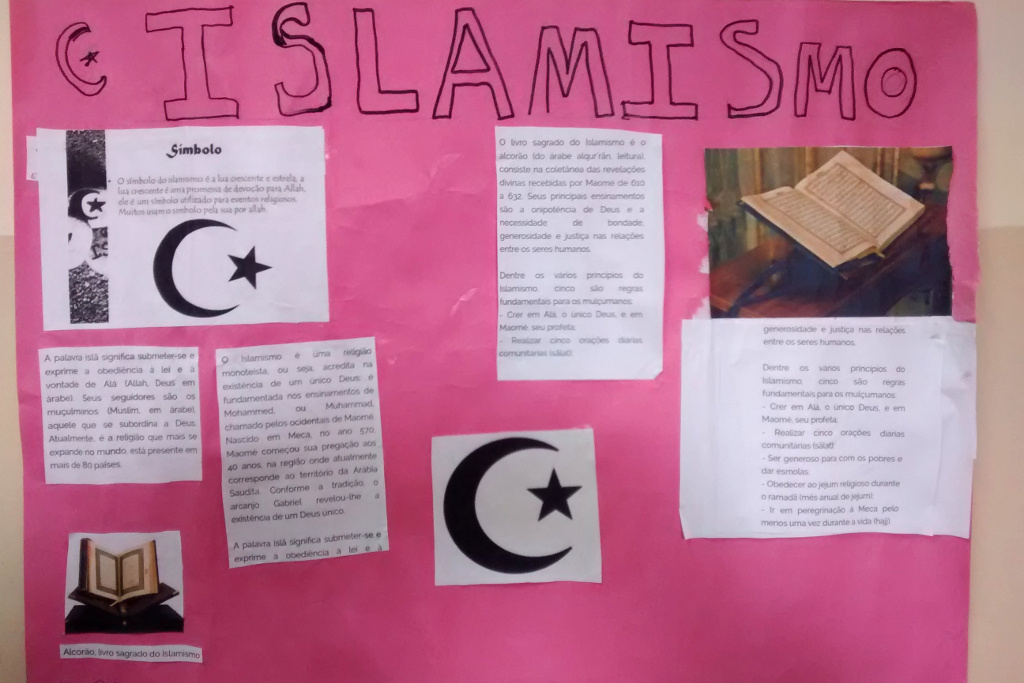 ISLAMISMO
Símbolo
O símbolo do islamismo é a lua crescente e estrela, a
lua crescente é uma promessa de devoção para Allah,
ele é um símbolo utilizado para eventos religiosos.
Muitos usam o símbolo pela sua por allah.
A palavra islã significa submeter-se e
exprime a obediência à lei e à
vontade de Alá (Allah, Deus em
árabe). Seus seguidores são os
muçulminos (Muslim, em árabe),
aquele que se subordina a Deus.
Atualmente, é a religião que mais se
expande no mundo, está presente em
mais de 80 países.
O Islamismo é uma religião
monoteísta, ou seja, acredita na
existência de um único Deus; é
fundamentada nos ensinamentos de
Mohammed, ou Muhammad,
chamado pelos ocidentais de Maomé.
Nascido em Meca, no ano 570,
Maomé começou sua pregação aos
40 anos, na região onde atualmente
corresponde ao território da Arábia
Saudita. Conforme a tradição, o
arcanjo Gabriel revelou-lhe a
existência de um Deus único.
A palavra islã significa submeter-se e
exprime a obediência à lei e à
Alcorão, livro sagrado do Islamismo
O livro sagrado do Islamismo é o
alcorão (do árabe alqur'rãn, leitura),
consiste na coletânea das revelações
divinas recebidas por Maomé de 610
a 632. Seus principais ensinamentos
são a onipotência de Deus e a
necessidade de bondade,
generosidade e justiça nas relações
entre os seres humanos.
Dentre os vários princípios do
Islamismo, cinco são regras
fundamentais para os mulçumanos:
- Crer em Alá, o único Deus, e em
Maomé, seu profeta;
- Realizar cinco orações diárias
comunitárias (sãlat);
generosidade e justiça nas relações
entre os seres humanos.
Dentre os vários princípios do
Islamismo, cinco são regras
fundamentais para os mulçumanos:
- Crer em Alá, o único Deus, e em
Maomé, seu profeta;
- Realizar cinco orações diárias
comunitárias (sãlat);
- Ser generoso para com os pobres e
dar esmolas;
- Obedecer ao jejum religioso durante
o ramadã (mês anual de jejum);
- Ir em peregrinação à Meca pelo
menos uma vez durante a vida (hajj).